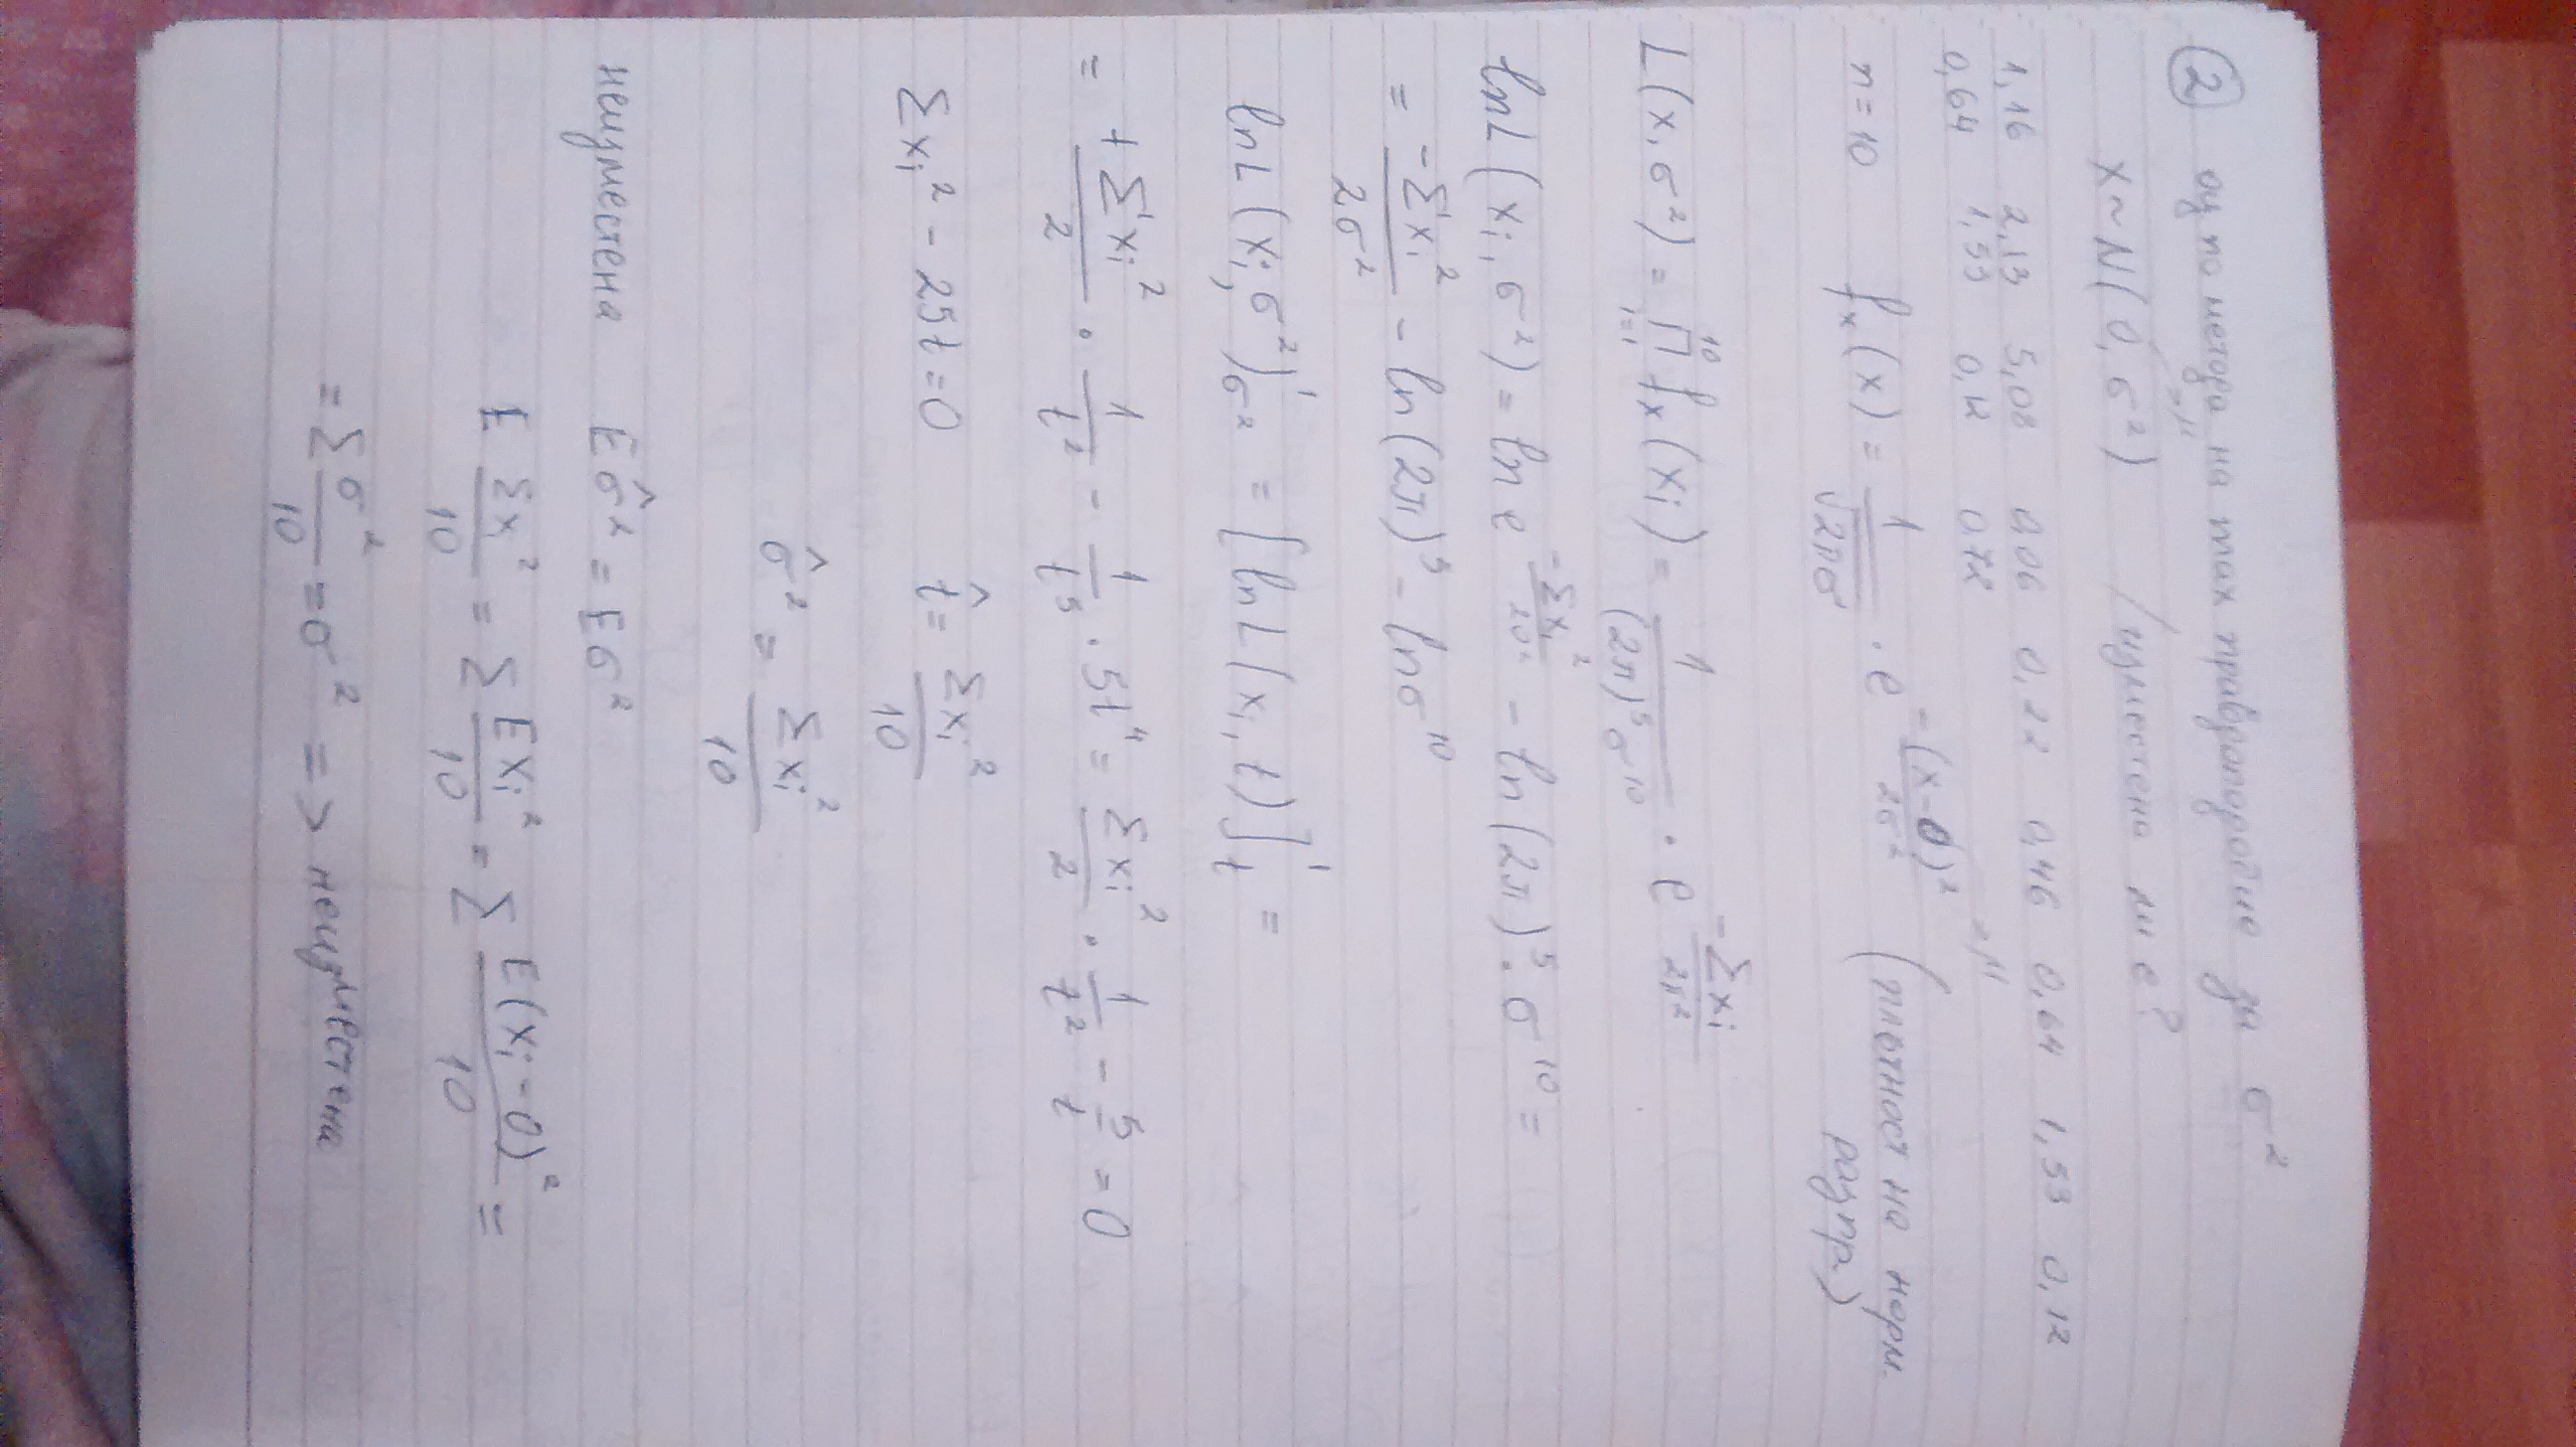 ② оц по метода на макс правдоподобие за σ²
X ~ N(0, σ²) / изместена ли е?
1,16 2,13 5,08 0,06 0,22 0,46 0,64 1,53 0,12
0,64 1,53 0,12 0,72
n = 10 fₓ(x) = 1/√2πσ · e^(-(x-0)²/2σ²) (плътност на норм. разпр)
L(x, σ²) = ∏ᵢ₌₁¹⁰ fₓ(xᵢ) = 1/((2π)⁵σ¹⁰) · e^(-Σxᵢ/2π²)
lnL(xᵢ, σ²) = ln e^(-Σxᵢ²/2σ²) - ln(2π)⁵·σ¹⁰ =
= -Σxᵢ²/2σ² - ln(2π)⁵ - lnσ¹⁰
lnL(xᵢ, σ²)'σ² = [lnL(xᵢ, t)]'ₜ =
= +Σxᵢ²/2 · 1/t² - 1/t⁵ · 5t⁴ = Σxᵢ²/2 · 1/t² - 5/t = 0
Σxᵢ² - 25t = 0 t̂ = Σxᵢ²/10
σ̂² = Σxᵢ²/10
неизместена Eσ̂² = Eσ²
E Σxᵢ²/10 = Σ Exᵢ²/10 = Σ E(xᵢ-0)²/10 =
= Σ σ²/10 = σ² => неизместена